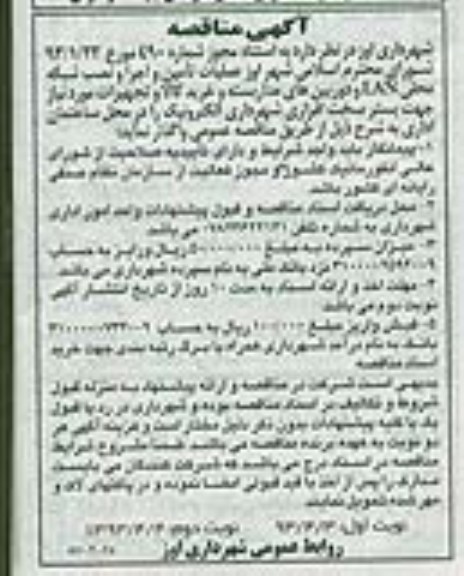 آگهی مناقصه
شهرداری اوز در نظر دارد به استناد مجوز شماره ۴۹۰ مورخ ۹۳/۱/۲۳
شورای محترم اسلامی شهر اوز عملیات تأمین و اجرا و نصب شبکه
محلی LAN و دوربین های مداربسته و خرید کالا و تجهیزات مورد نیاز
جهت بستر سخت افزاری شهرداری الکترونیک را در محل ساختمان
اداری به شرح ذیل از طریق مناقصه عمومی واگذار نماید:
۱- پیمانکار باید واجد شرایط و دارای تاییدیه صلاحیت از شورای
عالی انفورماتیک کشور و مجوز فعالیت از سازمان نظام صنفی
رایانه ای کشور باشد.
۲- محل دریافت اسناد مناقصه و قبول پیشنهادات واحد امور اداری
شهرداری به شماره تلفن می باشد.
۳- میزان سپرده به مبلغ ریال واریز به حساب
نزد بانک ملی به نام سپرده شهرداری می باشد.
۴- مهلت اخذ و ارائه اسناد به مدت ۱۰ روز از تاریخ انتشار آگهی
نوبت دوم می باشد.
۵- فیش واریز مبلغ ریال به حساب
بانک به نام درآمد شهرداری همراه با برگ رتبه بندی جهت خرید
اسناد مناقصه
بدیهی است شرکت در مناقصه و ارائه پیشنهاد به منزله قبول
شروط و تکالیف در اسناد مناقصه بوده و شهرداری در رد یا قبول
یک یا کلیه پیشنهادات بدون ذکر دلیل مختار است و هزینه آگهی هر
دو نوبت به عهده برنده مناقصه می باشد ضمنا مشروح شرایط
مناقصه در اسناد درج می باشد که شرکت کنندگان می بایست
مدارک را پس از اخذ با قید قبولی امضا نموده و در پاکتهای لاک و
مهر شده تحویل نمایند.
نوبت اول: ۹۳/۳/۳ نوبت دوم:
روابط عمومی شهرداری اوز